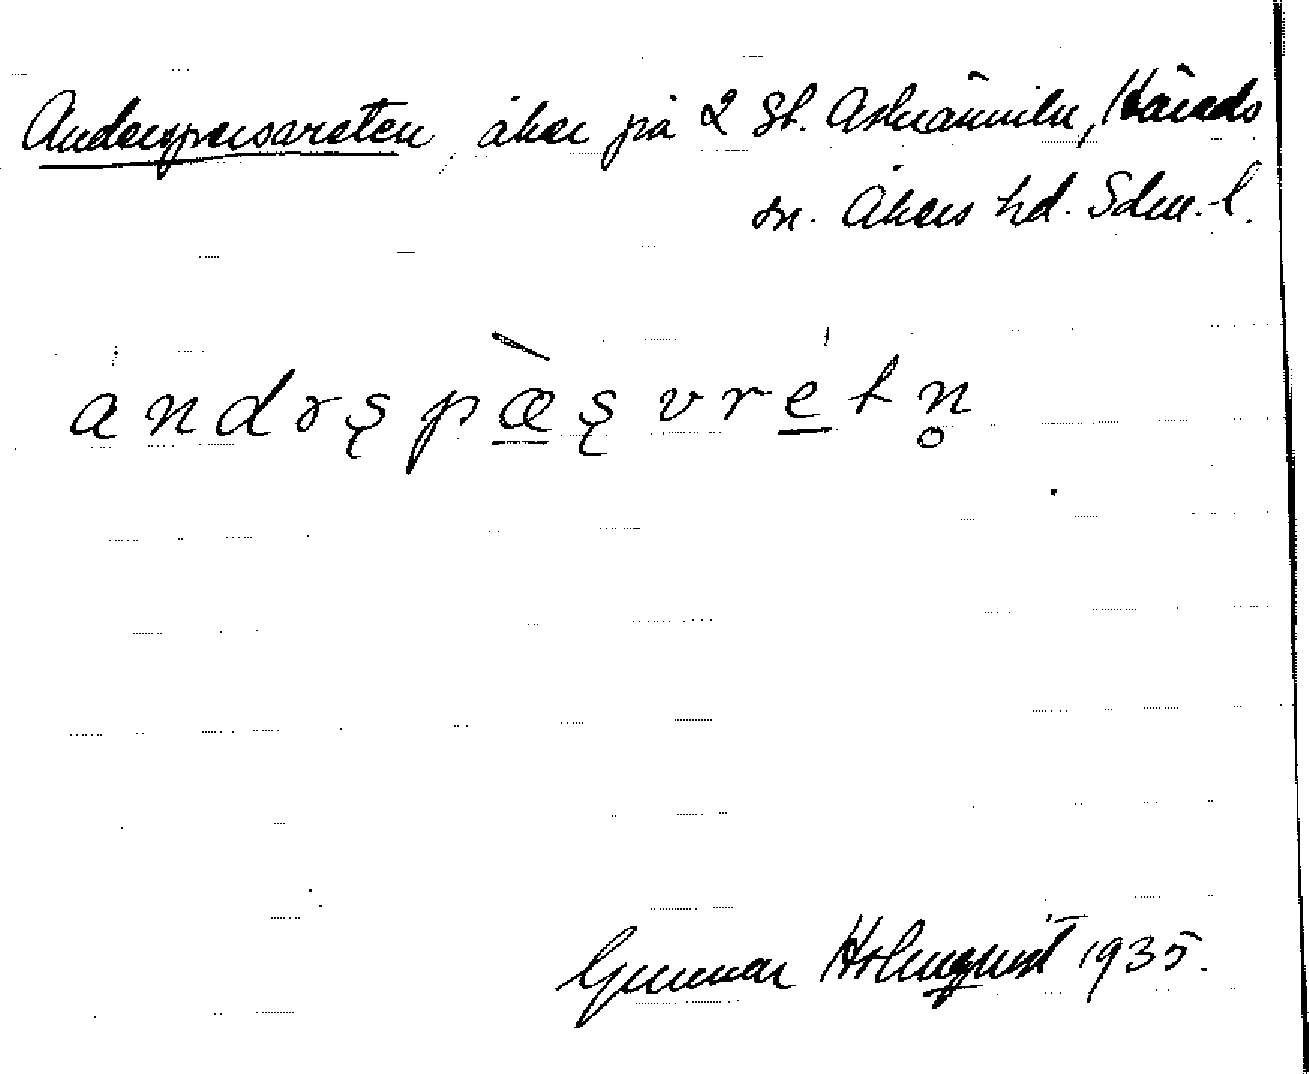 Anderspersvreten, åker på 2 St. Asknämniln, Härads
sn. Åkers hd. Sdm. l.
andrs̨pæ̀s̨vrétn̥
Gunnar Holmquist 1935.